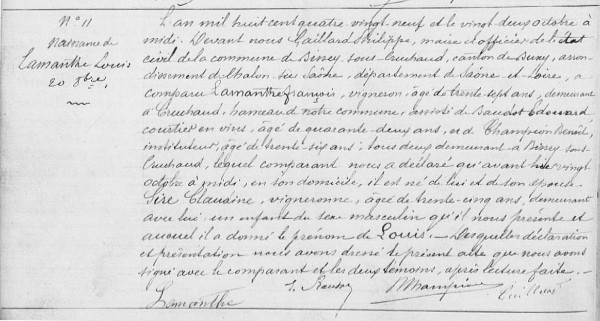 N° 11
Naissance de
Lamanthe Louis
20 8bre
L'an mil huit cent quatre-vingt-neuf et le vingt deux octobre à
midi. Devant nous Gaillard Philippe, maire et officier de l'état
civil de la commune de Bissey-sous-Cruchaud, canton de Buxy, arron-
dissement de Chalon-sur-Saône, département de Saône-et-Loire, a
comparu Lamanthe françois, vigneron, âgé de trente-sept ans, demeurant
à Cruchaud, hameau de notre commune, assisté de Baudot Edouard
courtier en vins, âgé de quarante-deux ans, et de Champion Benoît,
instituteur, âgé de trente-six ans; tous deux demeurant à Bissey-sous-
Cruchaud, lequel comparant nous a déclaré qu'avant hier vingt
octobre à midi, en son domicile, il est né de lui et de son épouse
Sire Claudine, vigneronne, âgée de trente-cinq ans, demeurant
avec lui, un enfant du sexe masculin qu'il nous présente et
auquel il a donné le prénom de Louis. — Desquelles déclaration
et présentation nous avons dressé le présent acte que nous avons
signé avec le comparant et les deux témoins, après lecture faite. —
Lamanthe